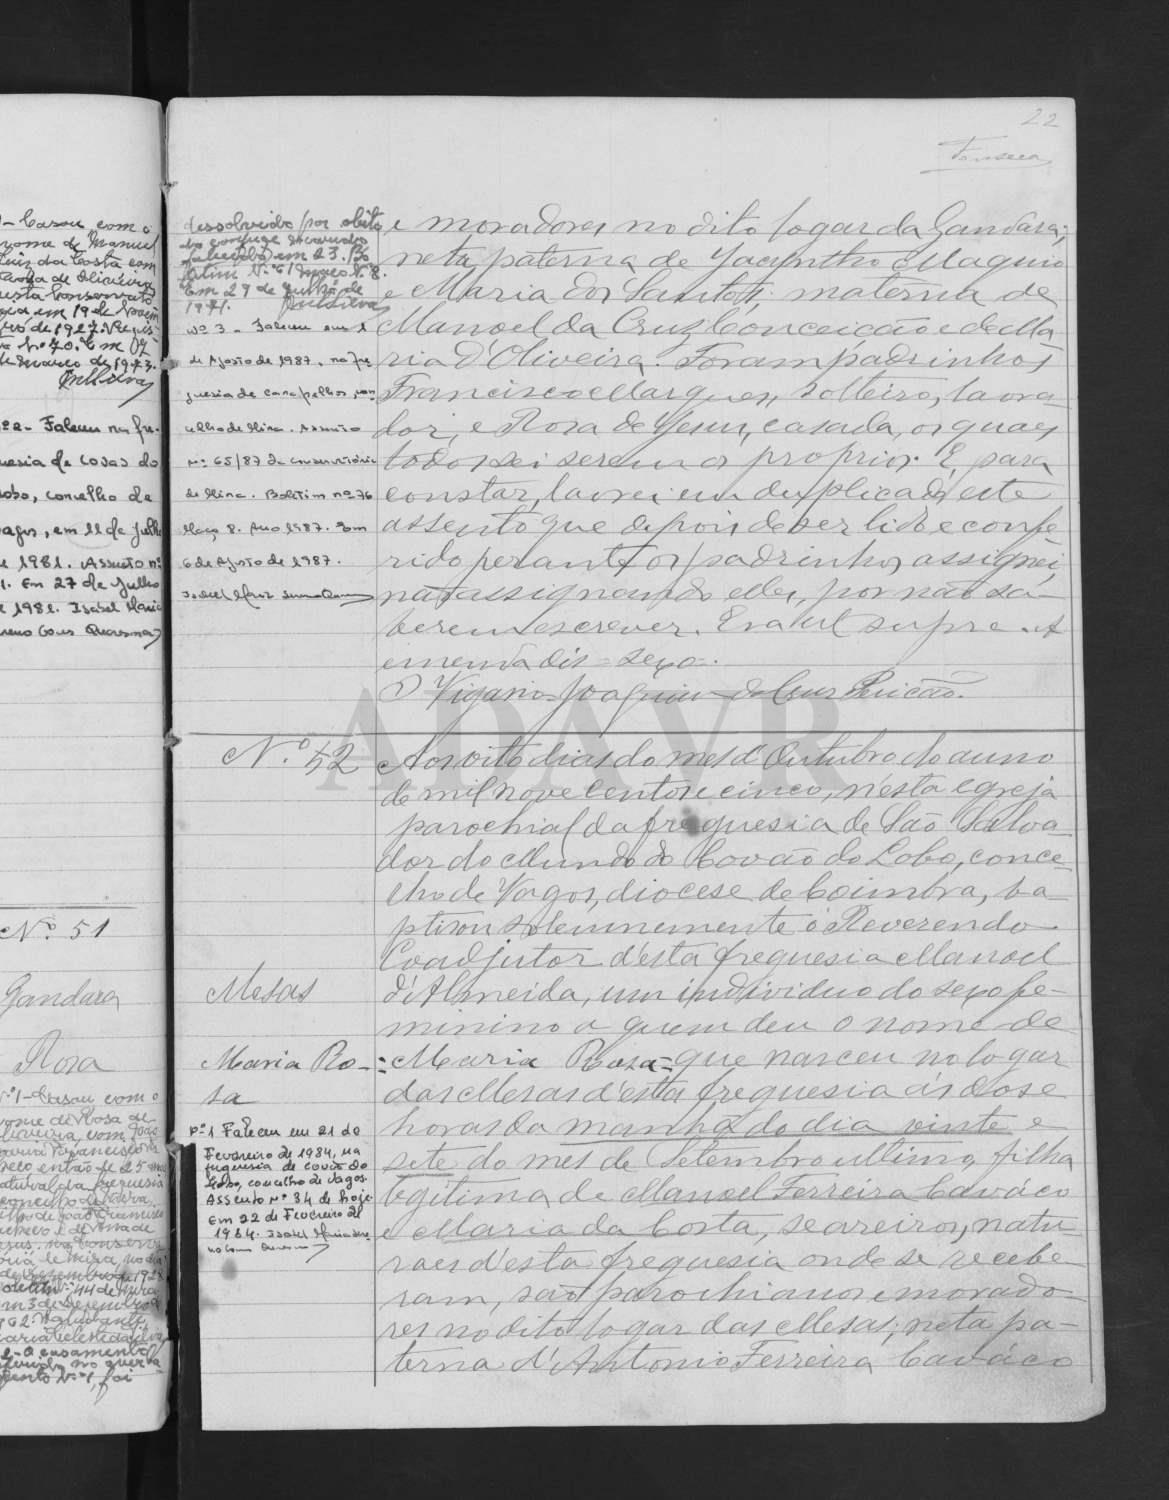 22
Fonseca
- Casou com o
nome de Manuel
Luiz da Costa com
de Oliveira
nesta Conservató
em 19 de Novem
bro de 1927. Regis-
to Nº 70. Em 07
de Março de 1973.
Falceu na fre-
guesia de Covão do
Lobo, concelho de
Vagos, em 11 de Julho
de 1981. Assento nº
1. Em 27 de Julho
de 1981. Isabel Maria
Gomes Quaresma
Nº 51
Gandara
Rosa
Nº 1 - Casou com o
nome de Rosa de
Oliveira, com João
Maria Francisco
então de 25 anos
natural da freguesia
concelho de Mira,
filho de João Francisco
e de Ana de
Jesus, na Conserva
tória de Mira, no dia
de 1928
Boletim Nº 44 de Mira
Em 3 de Dezembro de
2 - O casamento
referido no averba
mento Nº 1, foi
dissolvido por obito
do conjuge marido
falecido em 23. Bo
letim Nº 61 maço Nº 8.
Em 29 de Junho de
1971.
Nº 3 - Faleceu em 1
de Agosto de 1987, na fre
guesia de Carapelhos, con
celho de Mira. Assento
nº 65/87 da Conservatória
de Mira. Boletim nº 76
Maço 8. Ano 1987. Em
6 de Agosto de 1987.
e moradores no dito logar da Gandara;
neta paterna de Jacyntho Maquio
e Maria dos Santos; materna de
Manoel da Cruz Conceição e de Ma
ria d'Oliveira. Foram padrinhos
Francisco Marques, solteiro, lavra-
dor, e Rosa de Jesus, casada, os quaes
todos sei serem os proprios. E para
constar, lavrei em duplicado este
assento que depois de ser lido e confe
rido perante os padrinhos assignei,
não assignando elles, por não sa-
berem escrever. Era ut supra. A
emenda diz = sexo =.
O Vigario Joaquim da Cruz Pericão.
Nº 52
Mesas
Maria Ro-
sa
Nº 1 Faleceu em 21 de
Fevereiro de 1984, na
freguesia de Covão do
Lobo, concelho de Vagos.
Assento nº 34 de hoje
Em 22 de Fevereiro de
1984. Isabel Maria
Aos oito dias do mes d'Outubro do anno
de mil nove centos e cinco, n'esta egreja
parochial da freguesia de São Salva-
dor do Mundo do Covão do Lobo, conce-
lho de Vagos, diocese de Coimbra, ba-
ptisou solemnemente o Reverendo
Coadjutor d'esta freguesia Manoel
d'Almeida, um individuo do sexo fe-
minino a quem deu o nome de
=Maria Rosa= que nasceu no logar
das Mesas d'esta freguesia ás dose
horas da manhã do dia vinte e
sete do mes de Setembro ultimo, filha
legitima de Manoel Ferreira Caváco
e Maria da Costa, seareiros, natu-
raes d'esta freguesia onde se recebe-
ram, são parochianos e morado-
res no dito logar das Mesas; neta pa-
terna d'Antonio Ferreira Caváco
ADAVR